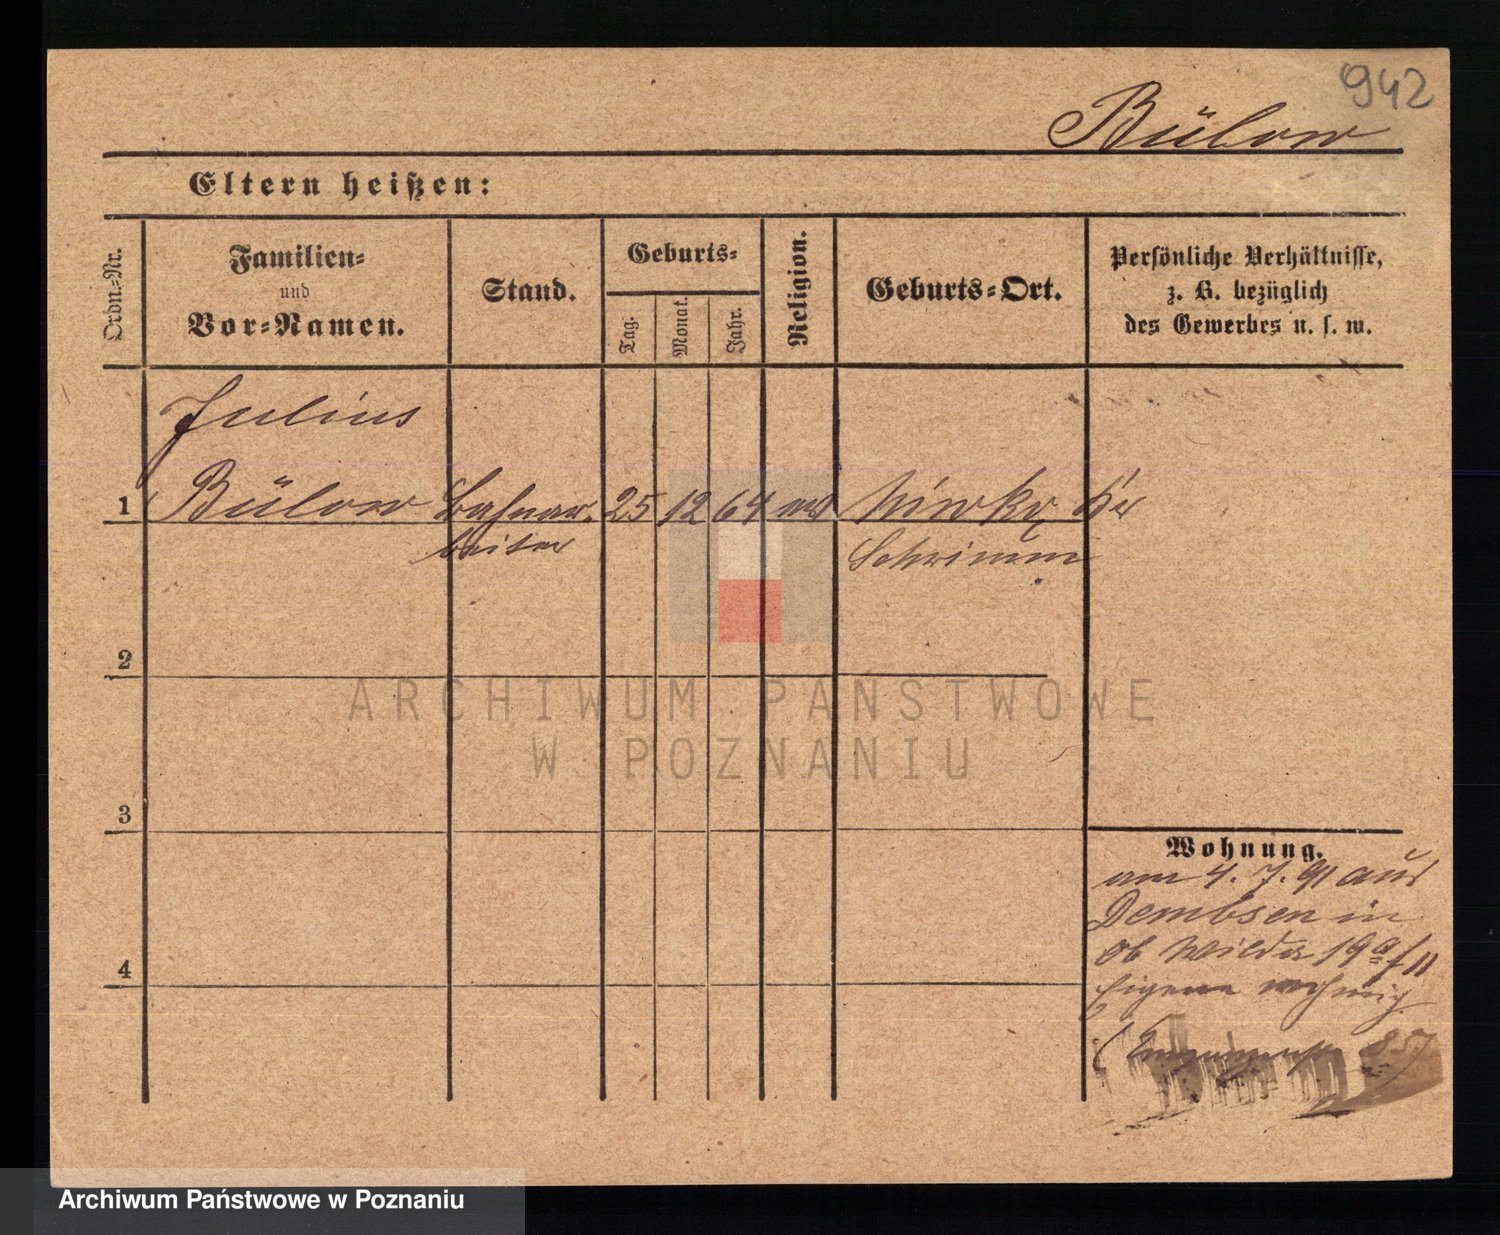 942
Bülow
Eltern heißen:
Ordn.-Nr.
Familien-
und
Vor-Namen.
Stand.
Geburts-
Tag.
Monat.
Jahr.
Religion.
Geburts-Ort.
Persönliche Verhältnisse,
z. B. bezüglich
des Gewerbes u. s. w.
Julius
1 Bülow Bahnar- 25 12 64 Kr
beiter Schrimm
2
ARCHIWUM PAŃSTWOWE
W POZNANIU
3
Wohnung.
am 4. 7. 91 aus
Dembsen in
Ob Wilda 19a / 11
4
Eigene
Archiwum Państwowe w Poznaniu